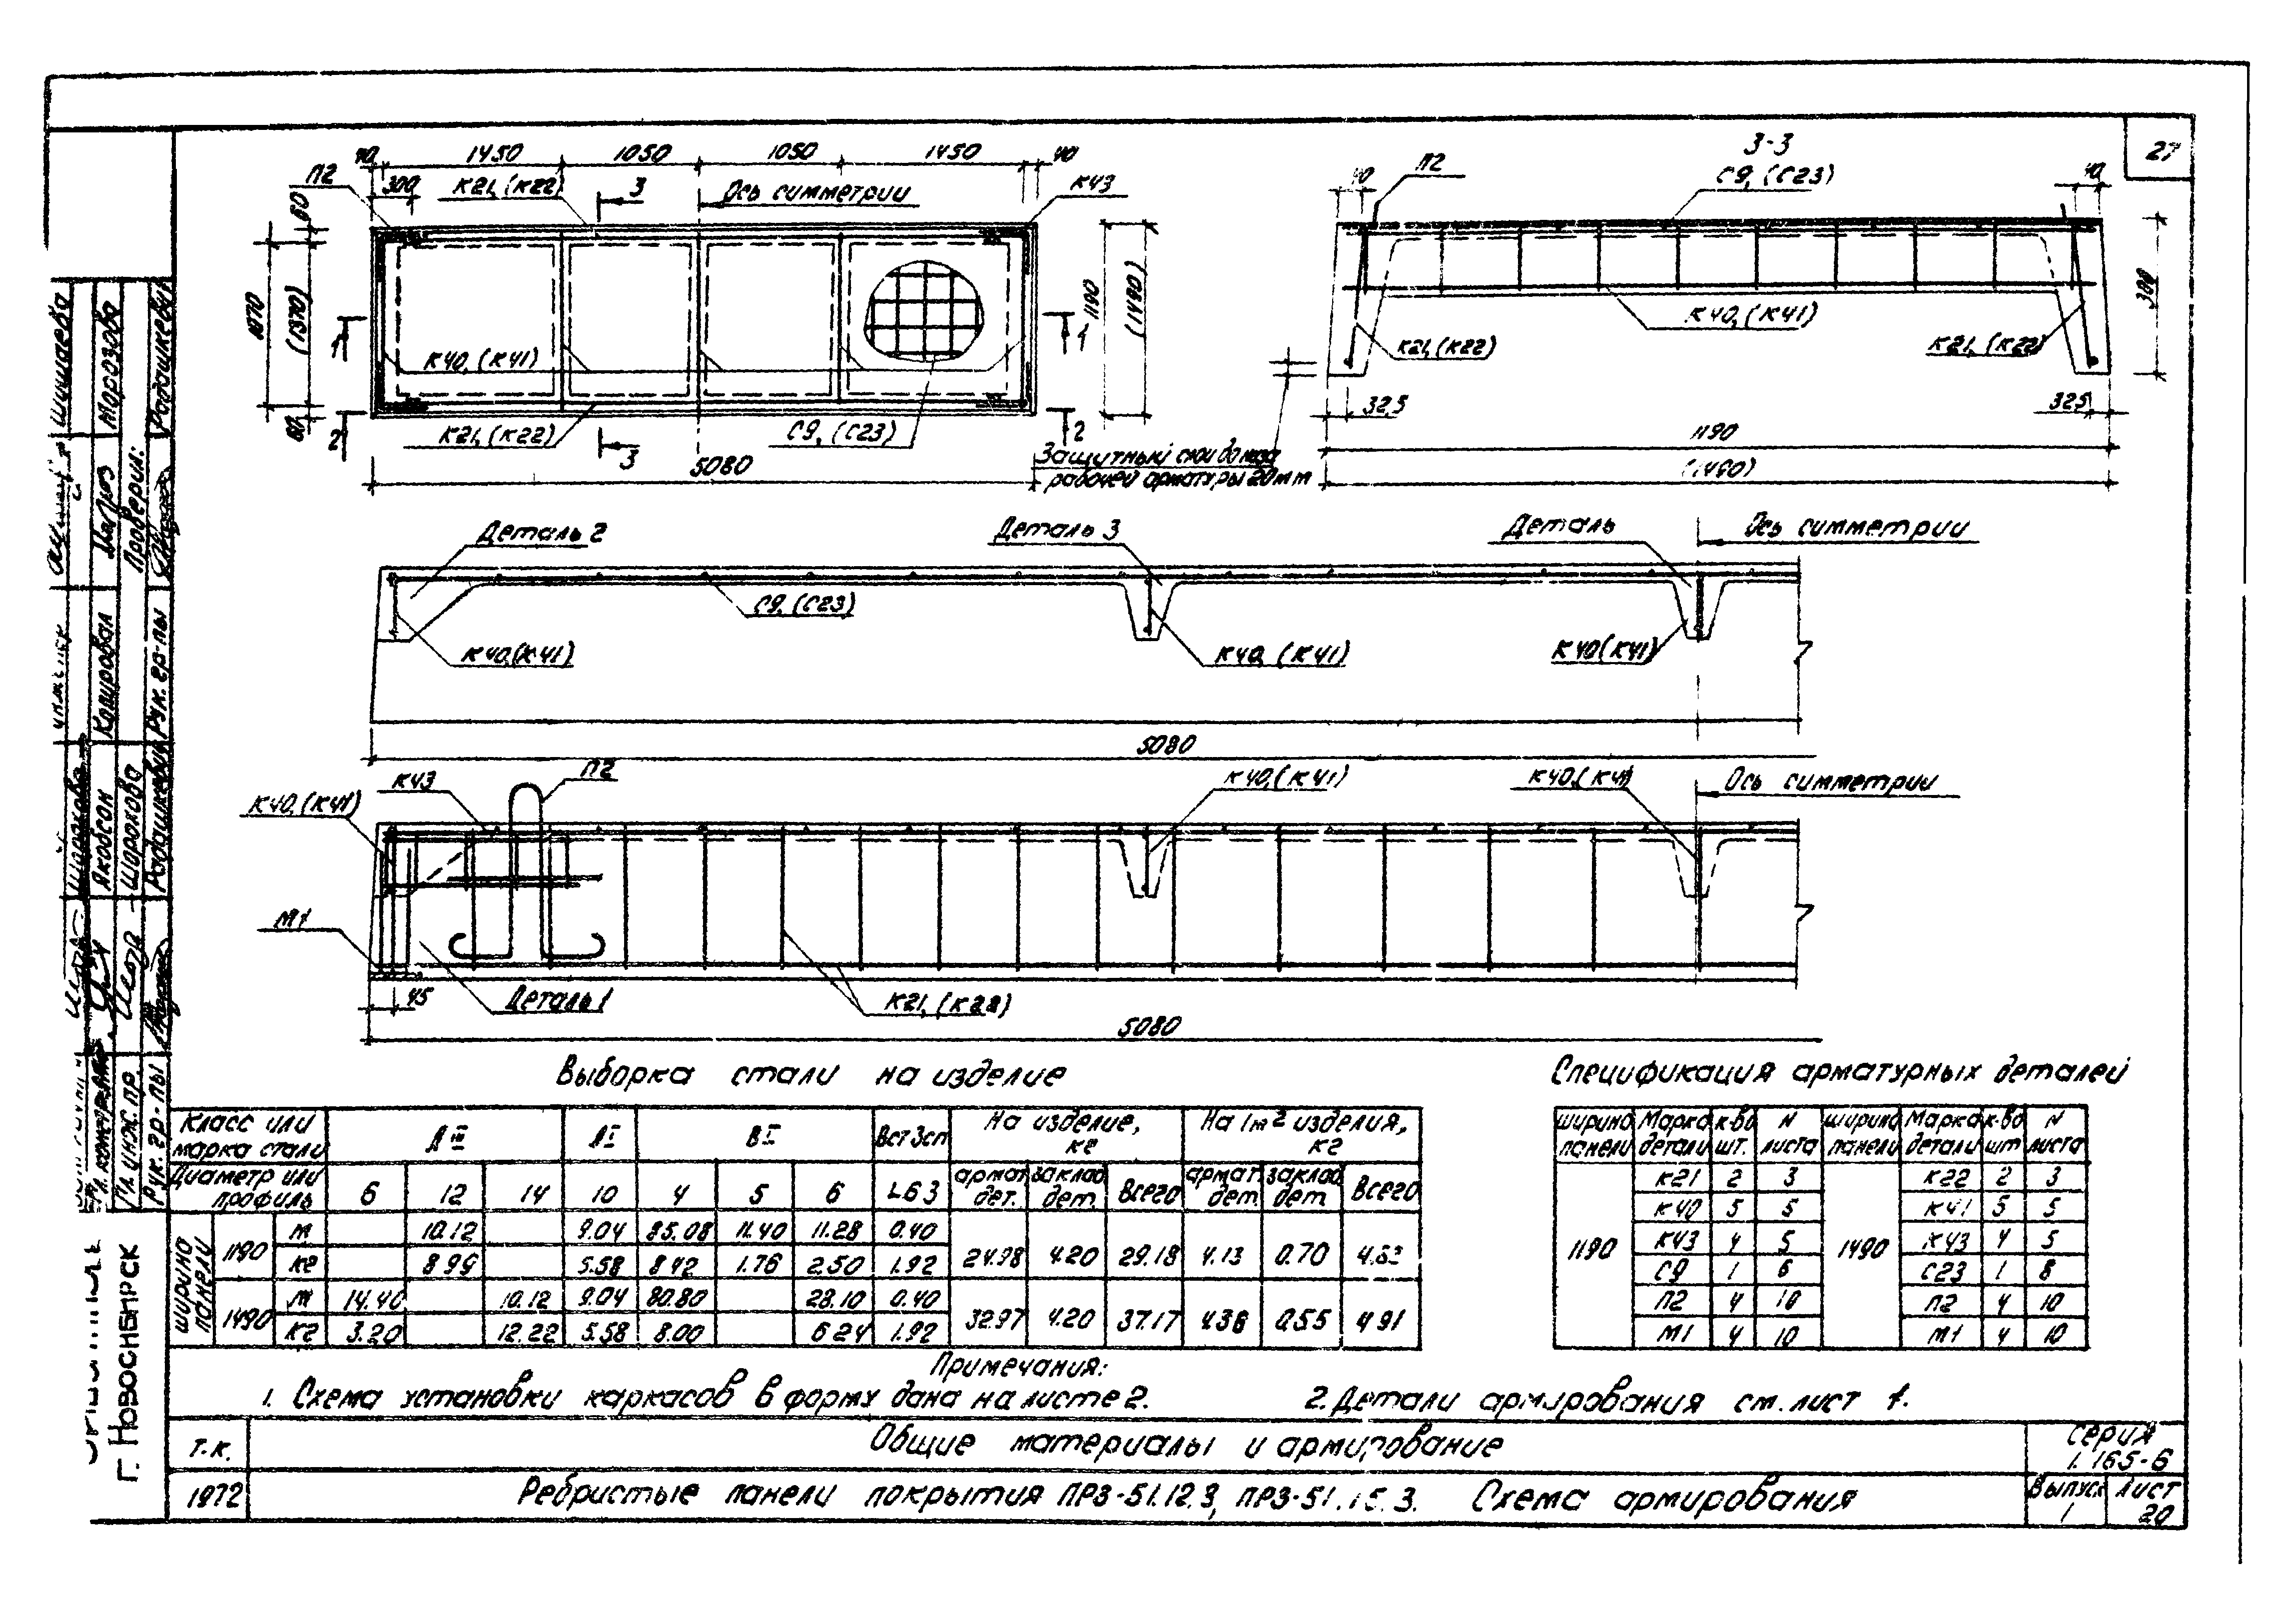 27
40 1450 1050 1050 1450 40
П2 300 К21, (К22) 3 Ось симметрии К43
60
1070 (1370)
1190 (1490)
1 К40, (К41) 1
60
2 К21, (К22) С9, (С23) 2
3
5080
3-3
С9, (С23)
40 П2 40
300
К40, (К41)
К21, (К22) К21, (К22)
32,5 32,5
1190
(1490)
Защитный
рабочей арматуры 20мм
Деталь 2 Деталь 3 Деталь Ось симметрии
С9, (С23)
К40,(К41) К40, (К41) К40(К41)
5080
К40, (К41) К43 П2 К40, (К41) К40,(К41) Ось симметрии
М1
45 Деталь 1 К21, (К22)
5080
Выборка стали на изделие
Класс или марка стали AIII AI BI Вст3сп На изделие, кг На 1м² изделия, кг
Диаметр или профиль 6 12 14 10 4 5 6 L63 армат. дет. заклад. дет. Всего армат. дет. заклад. дет. Всего
ширина панели
1190 м 10.12 9.04 85.08 11.40 11.28 0.40
кг 8.99 5.58 8.42 1.76 2.50 1.92 24.98 4.20 29.18 4.13 0.70 4.83
1490 м 14.40 10.12 9.04 80.80 28.10 0.40
кг 3.20 12.22 5.58 8.00 6.24 1.92 32.97 4.20 37.17 4.36 0.55 4.91
Спецификация арматурных деталей
ширина панели Марка детали к-во шт. N листа ширина панели Марка детали к-во шт N листа
1190 1490
К21 2 3 К22 2 3
К40 5 5 К41 5 5
К43 4 5 К43 4 5
С9 1 6 С23 1 8
П2 4 10 П2 4 10
М1 4 10 М1 4 10
Примечания:
1. Схема установки каркасов в форму дана на листе 2. 2. Детали армирования см. лист 1.
Т.К. Общие материалы и армирование Серия 1.165-6
1972 Ребристые панели покрытия ПР3-51.12.3, ПР3-51.15.3. Схема армирования Выпуск 1 Лист 20
Шишаева
Морозова
Радашкевич
Проверил:
Копировал
Рук. гр-пы
Шорохова
Якобсон
Шорохова
Радашкевич
Гл. инж. пр.
Рук. гр-пы
г. Новосибирск